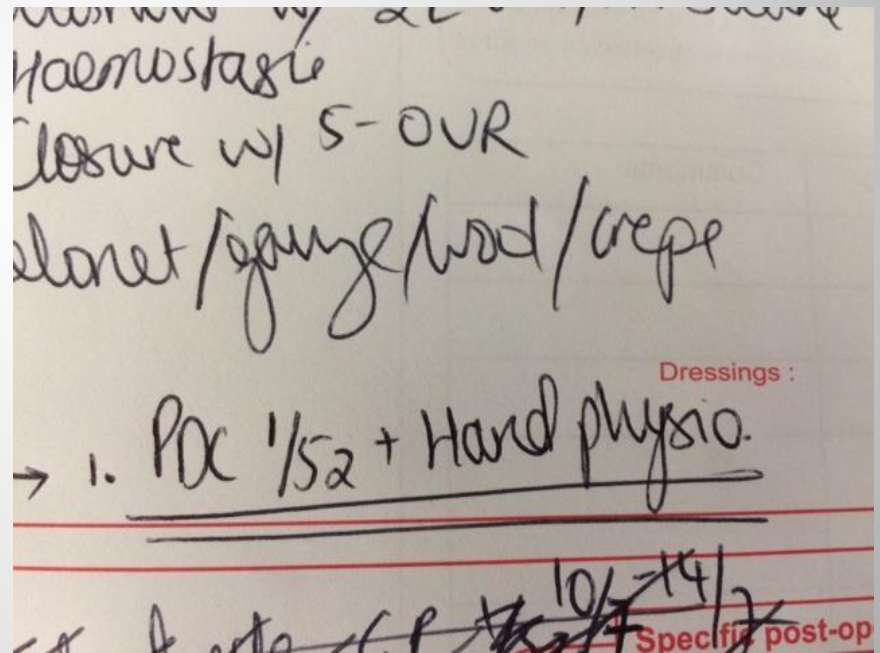 w/ 2L
Haemostasis
Closure w/ 5-0VR
elonet/gauze/wool/crepe
Dressings :
→ 1. PDC 1/52 + Hand physio.
10/7-14/7
Specific post-op